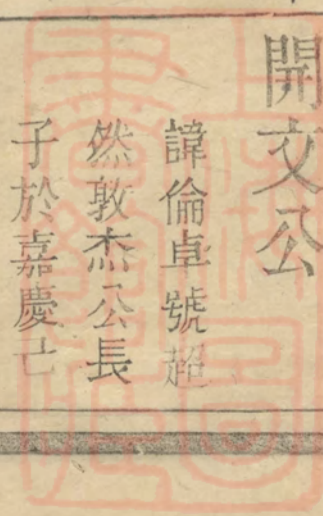 開文公
諱倫卓號超
然敦杰公長
子於嘉慶亡